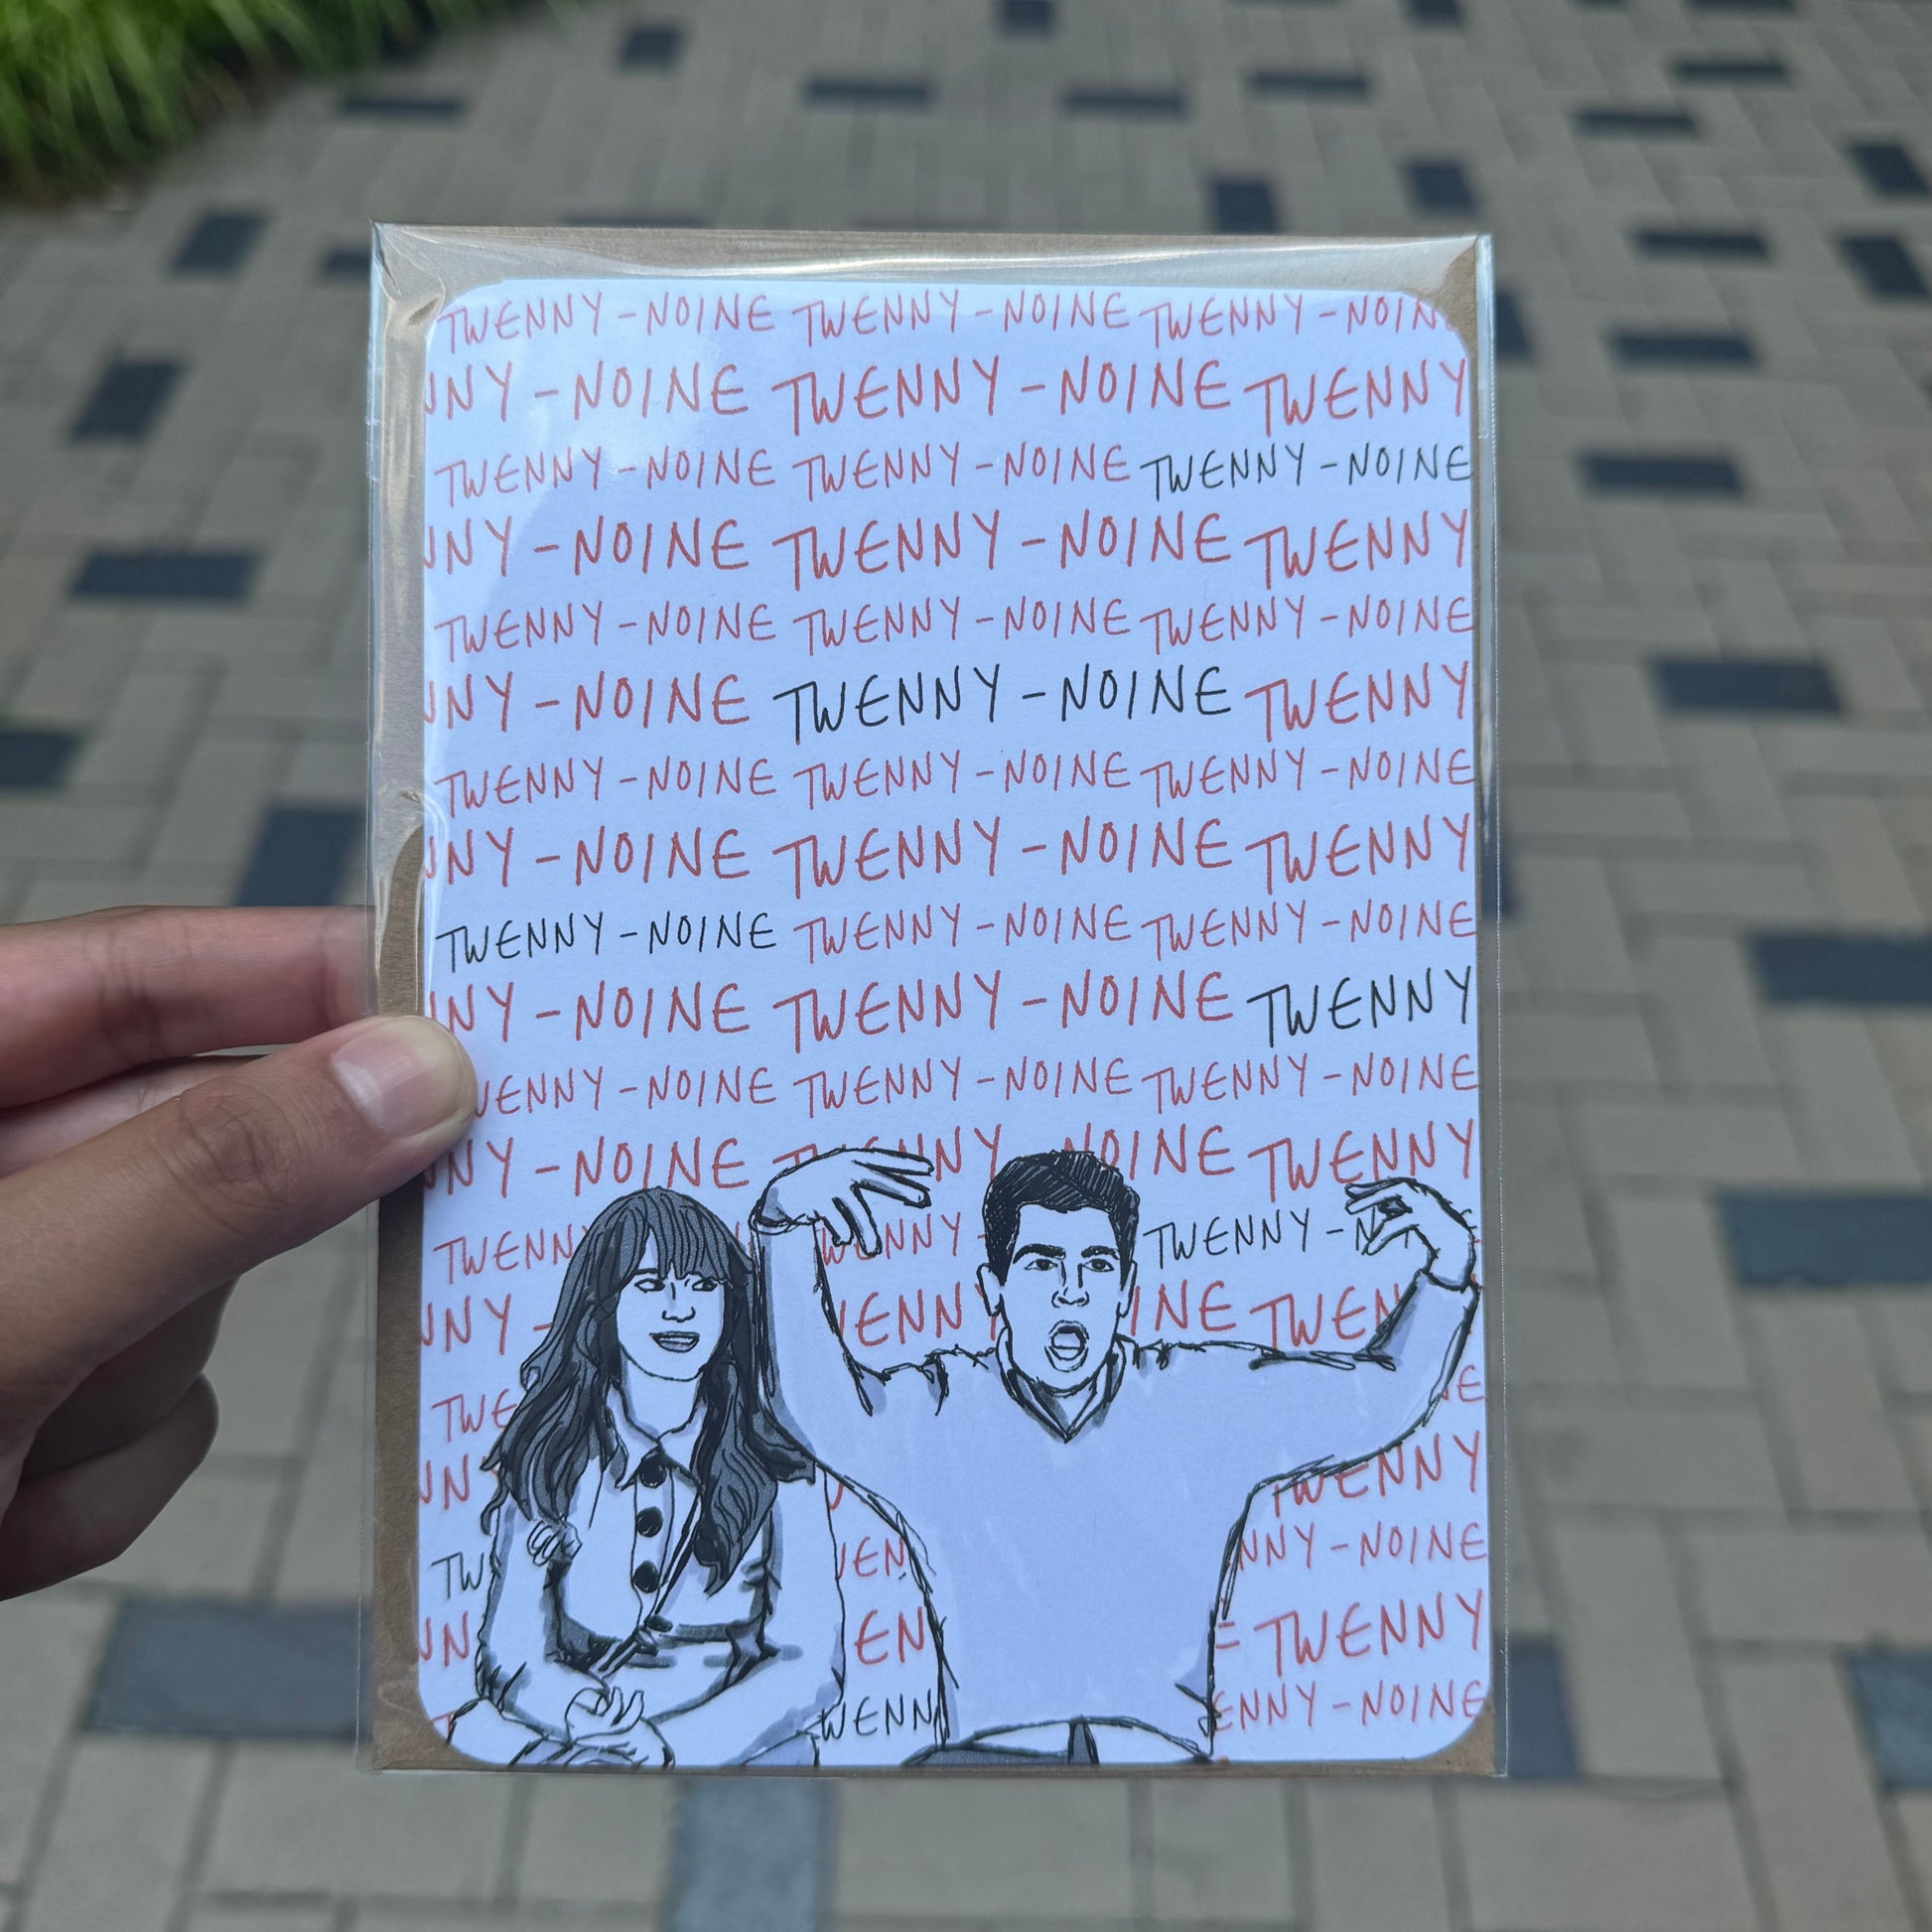 TWENNY-NOINE TWENNY-NOINE TWENNY-NOIN
NNY-NOINE TWENNY-NOINE TWENNY
TWENNY-NOINE TWENNY-NOINE TWENNY-NOINE
NNY-NOINE TWENNY-NOINE TWENNY
TWENNY-NOINE TWENNY-NOINE TWENNY-NOINE
NNY-NOINE TWENNY-NOINE TWENNY
TWENNY-NOINE TWENNY-NOINE TWENNY-NOINE
NNY-NOINE TWENNY-NOINE TWENNY
TWENNY-NOINE TWENNY-NOINE TWENNY-NOINE
NNY-NOINE TWENNY-NOINE TWENNY
WENNY-NOINE TWENNY-NOINE TWENNY-NOINE
NNY-NOINE TWENNY-NOINE TWENNY
TWENN WENNY- TWENNY-N
NNY- ENNY INE TWEN
TWE NE
NN TWENNY
TW EN NNY-NOINE
NN EN TWENNY
WENN ENNY-NOINE